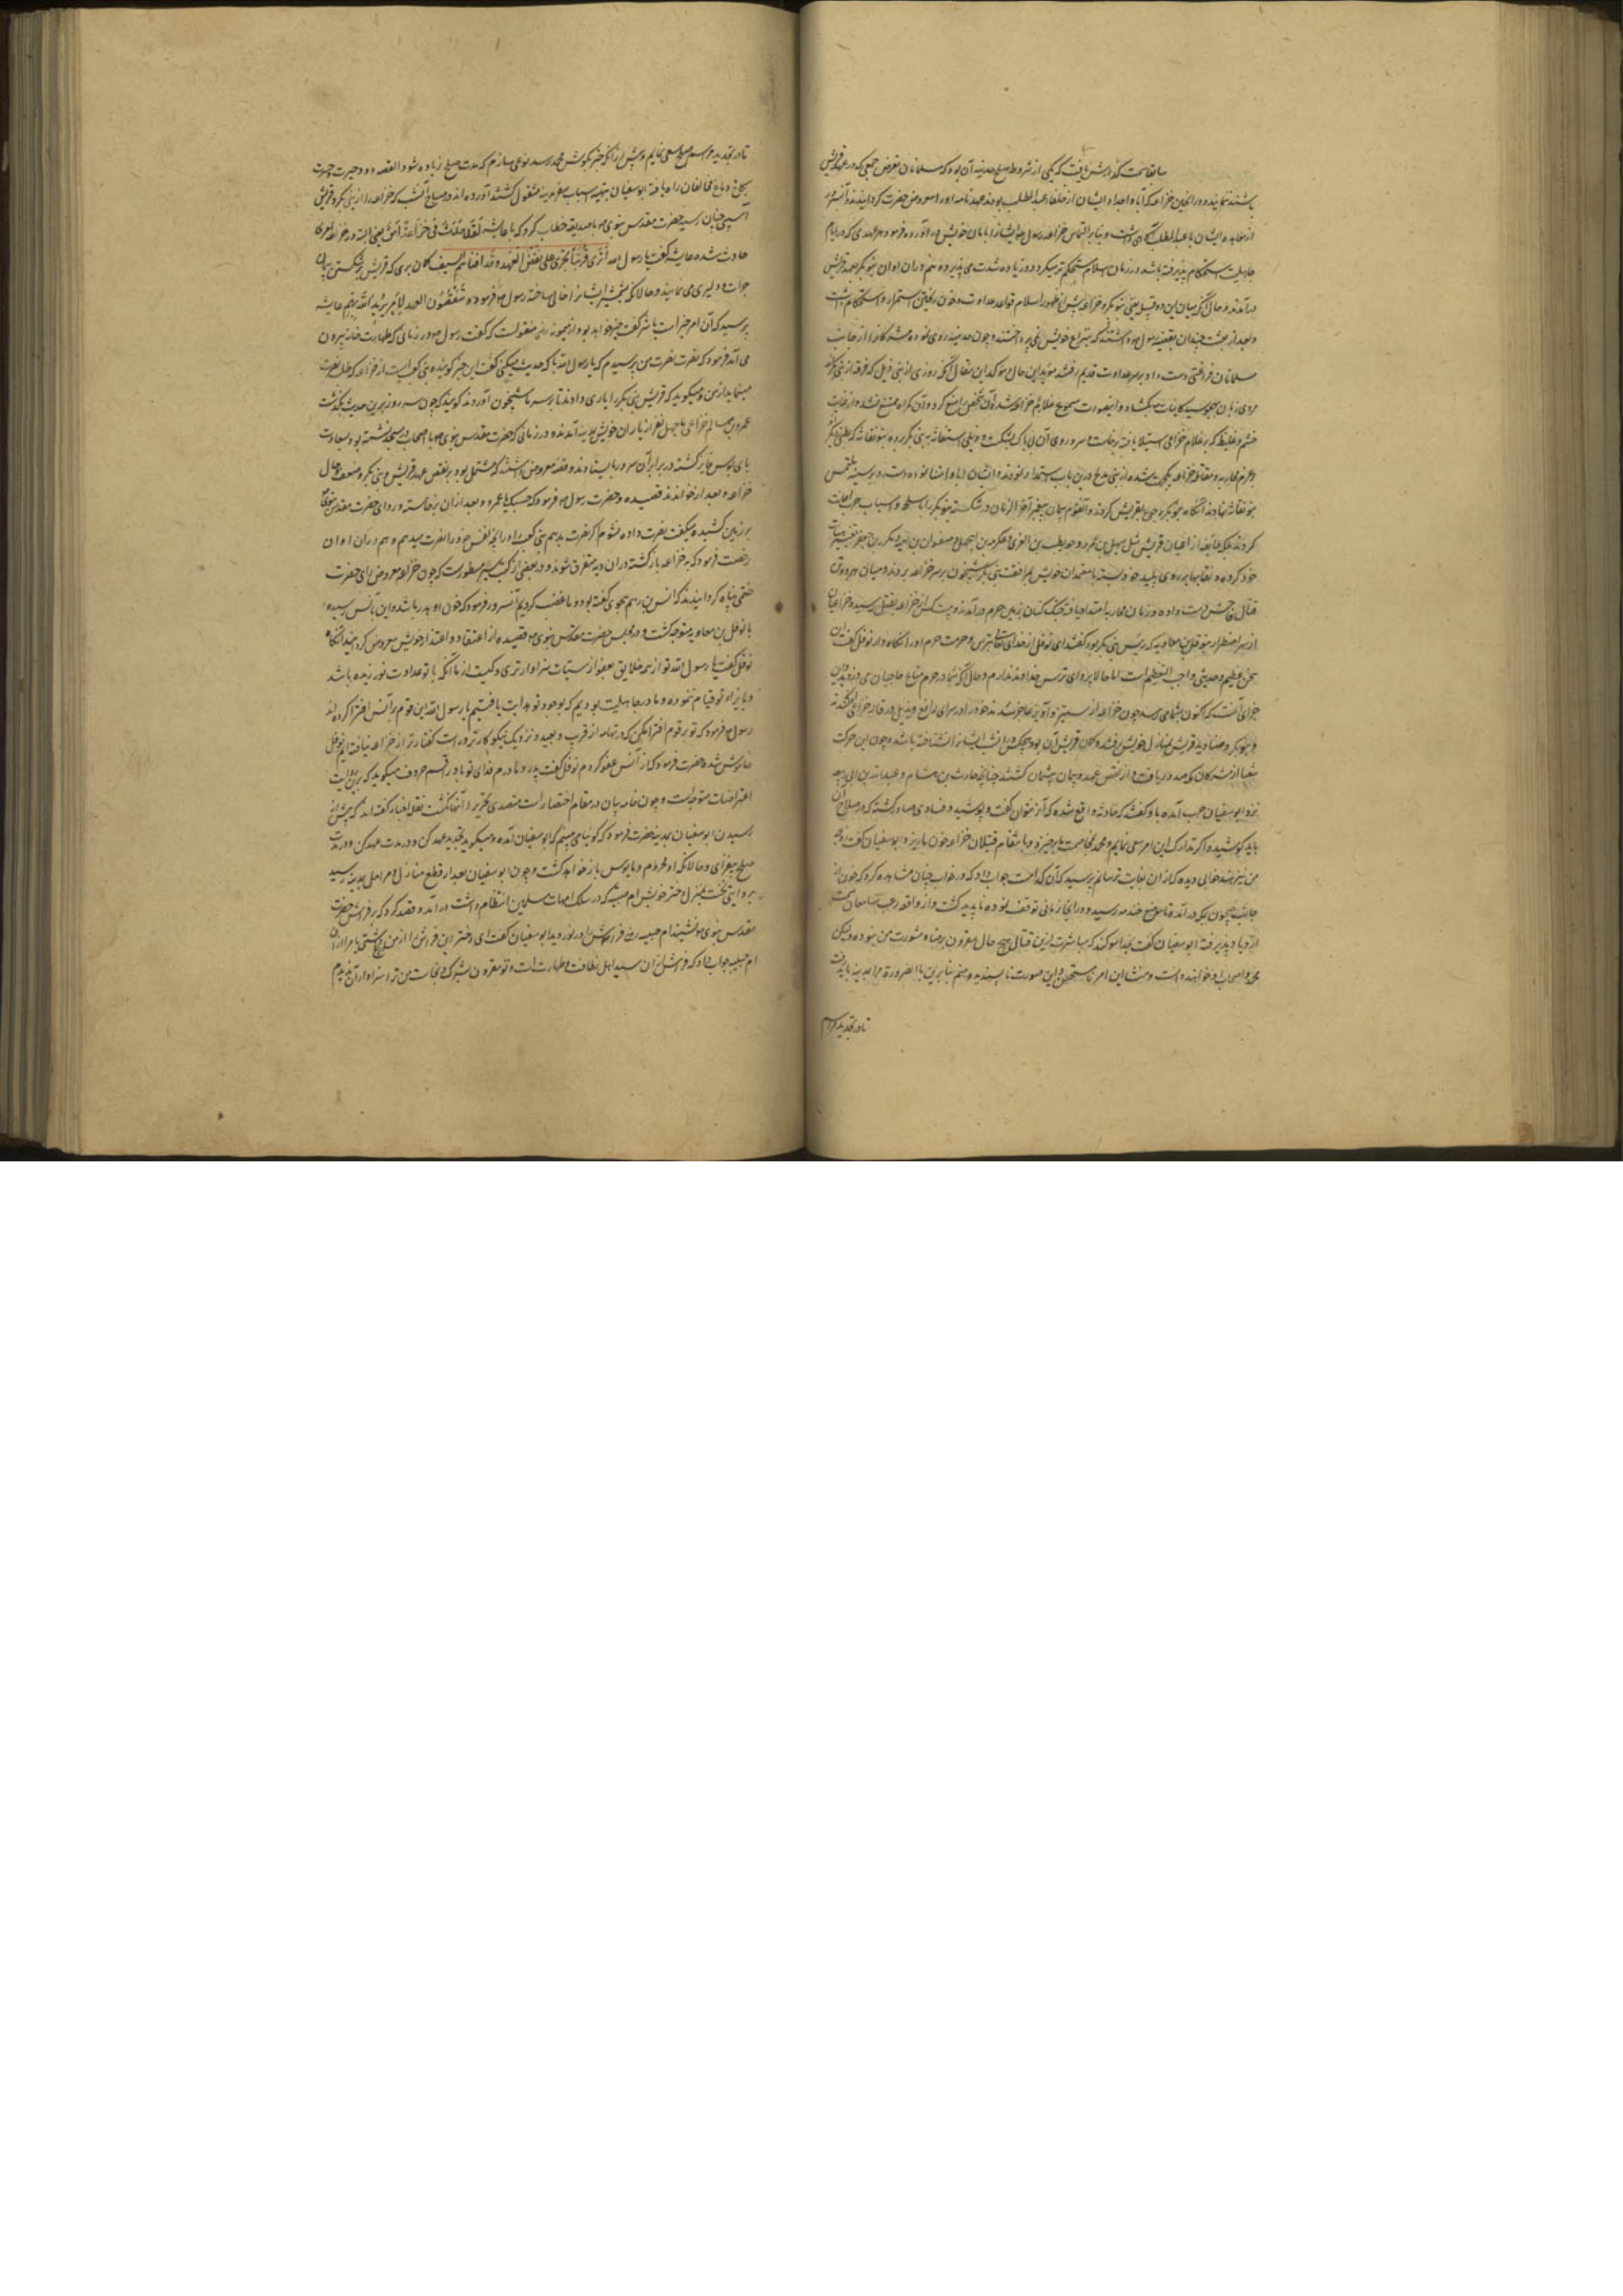 سابقا سمت گذارش یافت که یکی از شروط صلح حدیبیه آن بود که مسلمانان متعرض جمعی که در عهد قریش
باشند ننمایند و در آن حین خزاعه که آبا و اجداد ایشان از حلفاء عبدالمطلب بودند عهدنامه او را معروض حضرت گردانیدند و آنسرور
از معاهده ایشان با عبدالمطلب آگاهی داشت و بنابر التماس خزاعه رسول ایشانرا بامان خویش در آورده فرمود هر عهدی که در ایام
جاهلیت استحکام پذیرفته باشد در زمان اسلام مستحکم‌تر میگردد و زیاده شدت می پذیرد و هم در آن اوان بنو بکر بعهد قریش
درآمدند و حال آنکه میان این دو قبیله یعنی بنو بکر و خزاعه پیش از ظهور اسلام قواعد عداوت و خون ریختن استمرار و استحکام داشت
و بعد از بعثت چندان بقضیه رسول داشتند که بنزاع خویش نمی پرداختند و چون حدیبیه روی نمود و مشرکانرا از جانب
مسلمانان فراغتی دست داد بر سر عداوت قدیم رفتند مؤید این حال و مؤکد این مقال آنکه روزی از بنی دیل که فرقه از بنی بکرند
مردی زبان بهجو سید کاینات میگشاد و اینصورت مسموع غلام خزاعی شده آن شخص را منع کرد و آن گمراه ممتنع نشد و از غایت
خشم و غیظ که بر غلام خزاعی استیلا یافته برخاست و سر و روی آن ناپاک بشکست و دیلی استغاثه به بنی بکر برده بنو نفاثه که بطنی از بکر
بنو نفاثه نهادند آنگاه بنو بکر رجوع بقریش کردند و آن قوم پیمان پیغمبر آخر الزمان در شکسته بنو بکر را باسلحه و اسباب حرب اعانت
کردند بلکه طایفه از اعیان قریش مثل سهیل بن عمرو و حویطب بن عبدالعزی و عکرمه بن ابیجهل و صفوان بن امیه و مکرز بن حفص تغییر هیات
خود کرده و نقابها بر روی پلید خود بسته با معتمدان خویش بمرافقت بنی بکر شبیخون بر سر خزاعه بردند و میان هر دو فریق
قتال فاحش دست داده و زمان محاربه امتداد یافته جنگ کنان بزمین حرم درآمدند و بیست کس از خزاعه بقتل رسیدند و خزاعیان
از سر اضطرار بنوفل بن معاویه که رئیس بنی بکر بود گفتند ای نوفل از خدای تعالی بترس و حرمت حرم او را نگاه دار نوفل گفت این
سخن عظیم و حدیثی واجب التعظیم است اما حالا پروای ترس خداوند ندارم و حال آنکه شما در حرم متاع حاجیان می دزدیدید این
جزای آنست که اکنون بشما می رسد چون خزاعه از ستیز و آویز عاجز شدند خود را در سرای رافع و بدیل ورقاء خزاعی افکندند
و بنو بکر و صنادید قریش بمنازل خویش رفتند و گمان قریش آن بود که هیچکس در آنشب ایشانرا نشناخته باشد و چون این حرکت
شنیعا از مشرکان مکه صدور یافت و از نقض عهد و پیمان پشیمان گشتند چنانچه حارث بن هشام و عبدالله بن ابی ربیعه
نزد ابوسفیان حرب آمده با او گفتند که حادثه واقع شده که آنرا نتوان گفت و پوشید و فسادی صادر گشته که در صلاح آن
باید کوشید و اگر تدارک این امر سعی ننمایم محمد بمخاصمت ما برخیزد و بانتقام قتیلان خزاعه خون ما ریزد ابوسفیان گفت زوجه
من نیز هند خوابی دیده که از آن بغایت ترسانم پرسیدند که آن کدامست جواب داد که در خواب چنان مشاهده کرد که خون از
جانب حجون بمکه درآمده تا موضع خندمه رسید و در آنجا زمانی توقف نموده ناپدید گشت و از واقعه رعب سامعان سمت
ازدیاد پذیرفته ابوسفیان گفت بخدا سوگند که مباشرت ازین قتال بهیچ حال مقرون برضا و مشورت من نبوده و لیکن
محمد و اصحاب او مرا منشا این امر مستحسن و این صورت ناپسندیده منم بنابرین بالضروره مرا بمدینه باید رفت
تا در تجدید مراسم
تا در تجدید مراسم صلح سعی نمایم و پیش از آنکه خبر بگوش محمد رسد نوعی سازم که مدت صلح زیاده شود القصه
و دماغ مخالفان راه یافته ابوسفیان بتهیه اسباب سفر مدینه مشغول گشتند آورده اند در صباح آنشب که خزاعه را از بنی بکر و قریش
آسیبی چنان رسید حضرت مقدس نبوی با صدیقه خطاب کرد که یا عایشه لقد حدث فی خزاعة امر یعنی البته در خزاعه امری
حادث شده عایشه گفت یا رسول الله اتری قریشا تجتری علی نقض العهد و قد افناهم السیف گمان بری که قریش بر شکستن پیمان
جرات و دلیری می نمایند و حالانکه شمشیر ایشانرا فانی ساخته رسول فرمود ینقضون العهد لامر یریده الله بهم عایشه
پرسید که آن امر خیر است یا شر گفت خیر خواهد بود از میمونه رض منقولست که گفت رسول در زمانی که طهارت خانه بیرون
می آمد فرمود که نصرت نصرت من پرسیدم که یا رسول الله با که حدیث میکنی گفت این خبر گوینده بنی کعب است از خزاعه که طلب نصرت
مینماید از من و میگوید که قریش بنی بکر را یاری دادند تا بر سر ما شبیخون آوردند گوید که چون سه روز برین حدیث بگذشت
عمرو بن سالم خزاعی با چهل نفر از یاران خویش بمدینه آمدند و در زمانی که حضرت مقدس نبوی با صحابه در مسجد نشسته بود بسعادت
پای بوس فایز گشته در برابر آن سرور بایستادند و قصه معروض داشتند که مشتمل بود بر نقض عهد قریش و بنی بکر و ضعف حال
خزاعه و بعد از خواندن قصیده حضرت رسول فرمود که حسبک یا عمرو و بعد از آن برخاسته و ردای حضرت مقدس نبوی
بر زمین کشیده میگفت نصرت داده نشوم اگر نصرت ندهم بنی کعب را در آنچه نفس خود را نصرت میدهم و هم در آن اوان
رخصت فرمود که خزاعه بازگشته در آن دیه متفرق شوند و در بعضی از کتب سیر مسطورست که چون خزاعه معروض رای حضرت
ختمی پناه گردانیدند که انس بن زنیم هجو کی گفته بود و ما غضب کردیم آنسرور فرمود که خون او هدر باشد و این بانس رسیده
با نوفل بن معاویه متوجه گشت و در مجلس حضرت مقدس نبوی قصیده از اعتقاد و اعتذار خویش معروض گردانید آنگاه
نوفل گفت یا رسول الله تو از همه خلایق بعفو از سیئات سزاوارتری و کیست از ما آنکه با تو عداوت نورزیده باشد
و بایذاء تو قیام ننموده و ما در جاهلیت بودیم که بوجود تو هدایت یافتیم یا رسول الله این قوم بر انس افترا کرده اند
رسول فرمود که تو بر قوم افترا مکن که در تهامه از قریب و بعید و نزدیک نیکوکارتر و راست گفتارتر از خزاعه نیافته ایم نوفل
خاموش شد حضرت فرمود که از انس عفو کردم نوفل گفت پدر و مادرم فدای تو باد راقم حروف میگوید که برین روایت
اعتراضات متوجه است و چون خامه بیان در مقام اختصار است متصدی تحریر آنها نگشت نقله اخبار گفته اند که پیش از
رسیدن ابوسفیان بمدینه حضرت فرمود که گوئیا می بینم که ابوسفیان آمده و میگوید تجدید عهد کن و در مدت عهد کن و در مدت
صلح بیفزای و حالانکه او محروم و مایوس باز خواهد گشت و چون ابوسفیان بعد از قطع منازل و مراحل بمدینه رسید
بروایتی نخست بمنزل دختر خویش ام حبیبه که در سلک امهات مسلمین انتظام داشت درآمد و قصد کرد که بر فراش حضرت
مقدس نبوی بنشیند ام حبیبه رض فراش را درنوردید ابوسفیان گفت ای دختر این فراش را از من دریغ داشتی یا مرا از آن
ام حبیبه جواب داد که فراش از آن سید اهل نظافت و طهارت است و تو مقرون بشرک و نجاست من ترا سزاوار آن ندیدم